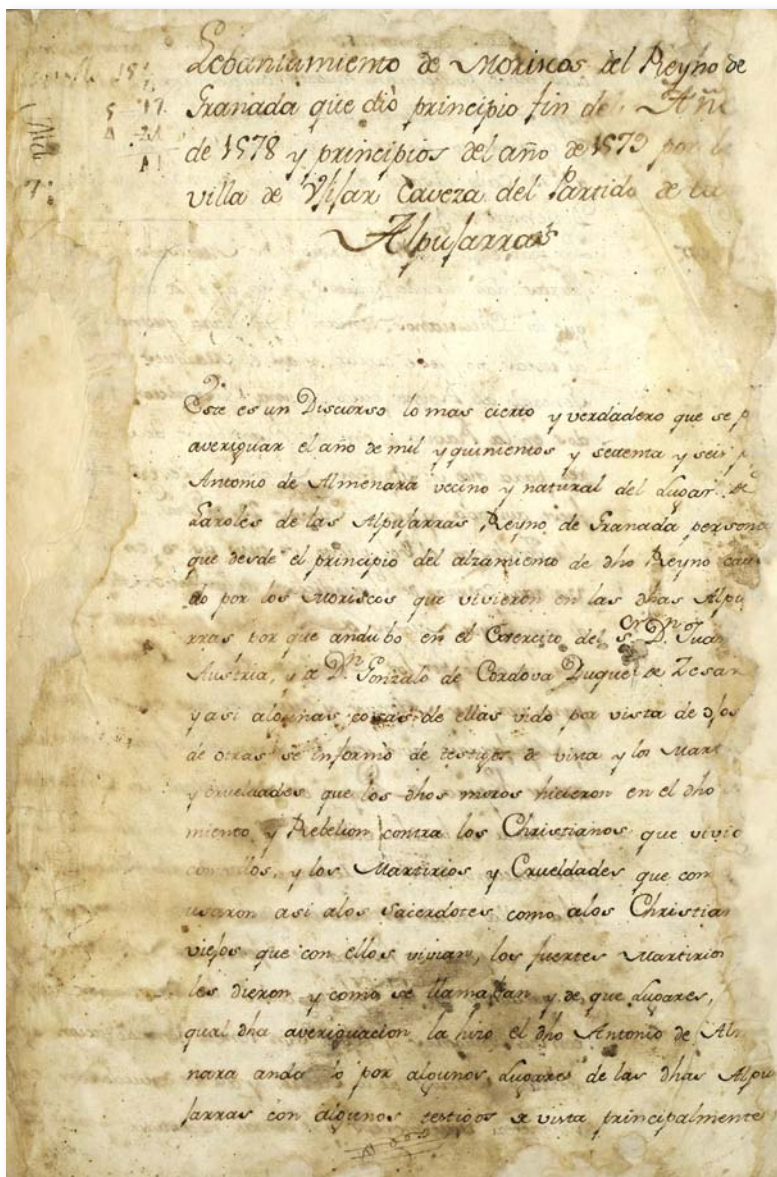 Lebantamiento de Moriscos del Reyno de
Granada que diò principio fin de Año
de 1578 y principios del año de 1579 por la
villa de Vjijar Caveza del Partido de la
Alpujarras
Este es un Discurso lo mas cierto y verdadero que se p
averiguar el año de mil y quinientos y setenta y seis p
Antonio de Almenara vecino y natural del Lugar de
Laroles de las Alpujarras Reyno de Granada persona
que desde el principio del alzamiento de dho Reyno cau
do por los Moriscos que vivieron en las dhas Alpu
rras por que andubo en el Exercito del Sor Dn Juan
Austria, y de Dn Gonzalo de Cordova Duque de Zesar
y asi algunas cosas de ellas vido por vista de ojos
de otras se informo de testigos de vista y los Mart
y crueldades que los dhos moros hicieron en el dho
miento y Rebelion contra los Christianos que vivie
con ellos, y los Martirios y Crueldades que con
usaron asi alos Sacerdotes como alos Christian
viejos que con ellos vivian, los fuertes Martirios
les dieron y como se llamaban y de que Lugares,
qual dha averiguacion la hizo el dho Antonio de Alm
nara anda do por algunos Lugares de las dhas Alpu
jarras con algunos testigos de vista principalmente